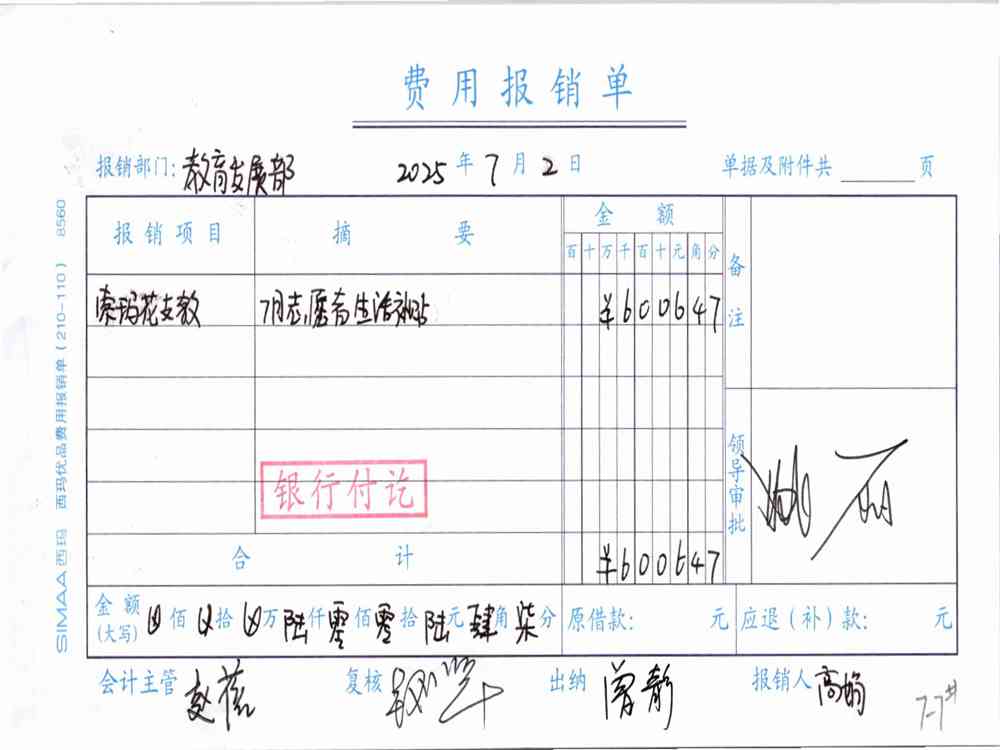 费用报销单
报销部门: 教育发展部 2025 年 7 月 2 日 单据及附件共 页
报销项目 摘要 金额 备注
百十万千百十元角分
索玛花支教 7月志愿者生活补贴 ¥600647
银行付讫
领导审批
合计 ¥600647
金额(大写) 佰 拾 万 陆仟 零佰 零拾 陆元 肆角 柒分 原借款: 元 应退(补)款: 元
会计主管 复核 出纳 曾静 报销人 高娟
7-7#
SIMAA西玛 西玛优品费用报销单(210-110) 8560